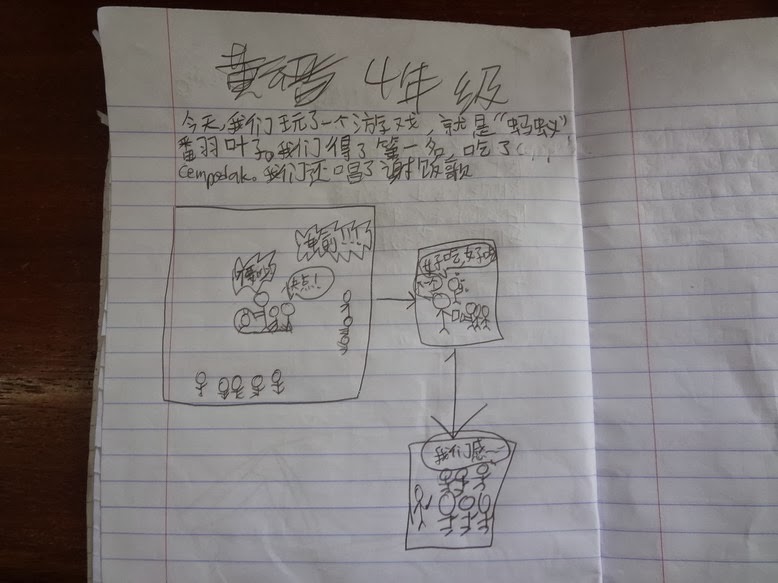 4年级
今天,我们玩了一个游戏,就是“蚂蚁”
番羽叶子。我们得了第一名,吃了(...
Cempedak。我们还唱了谢饭歌
快点!
好吃,好吃
我们感~